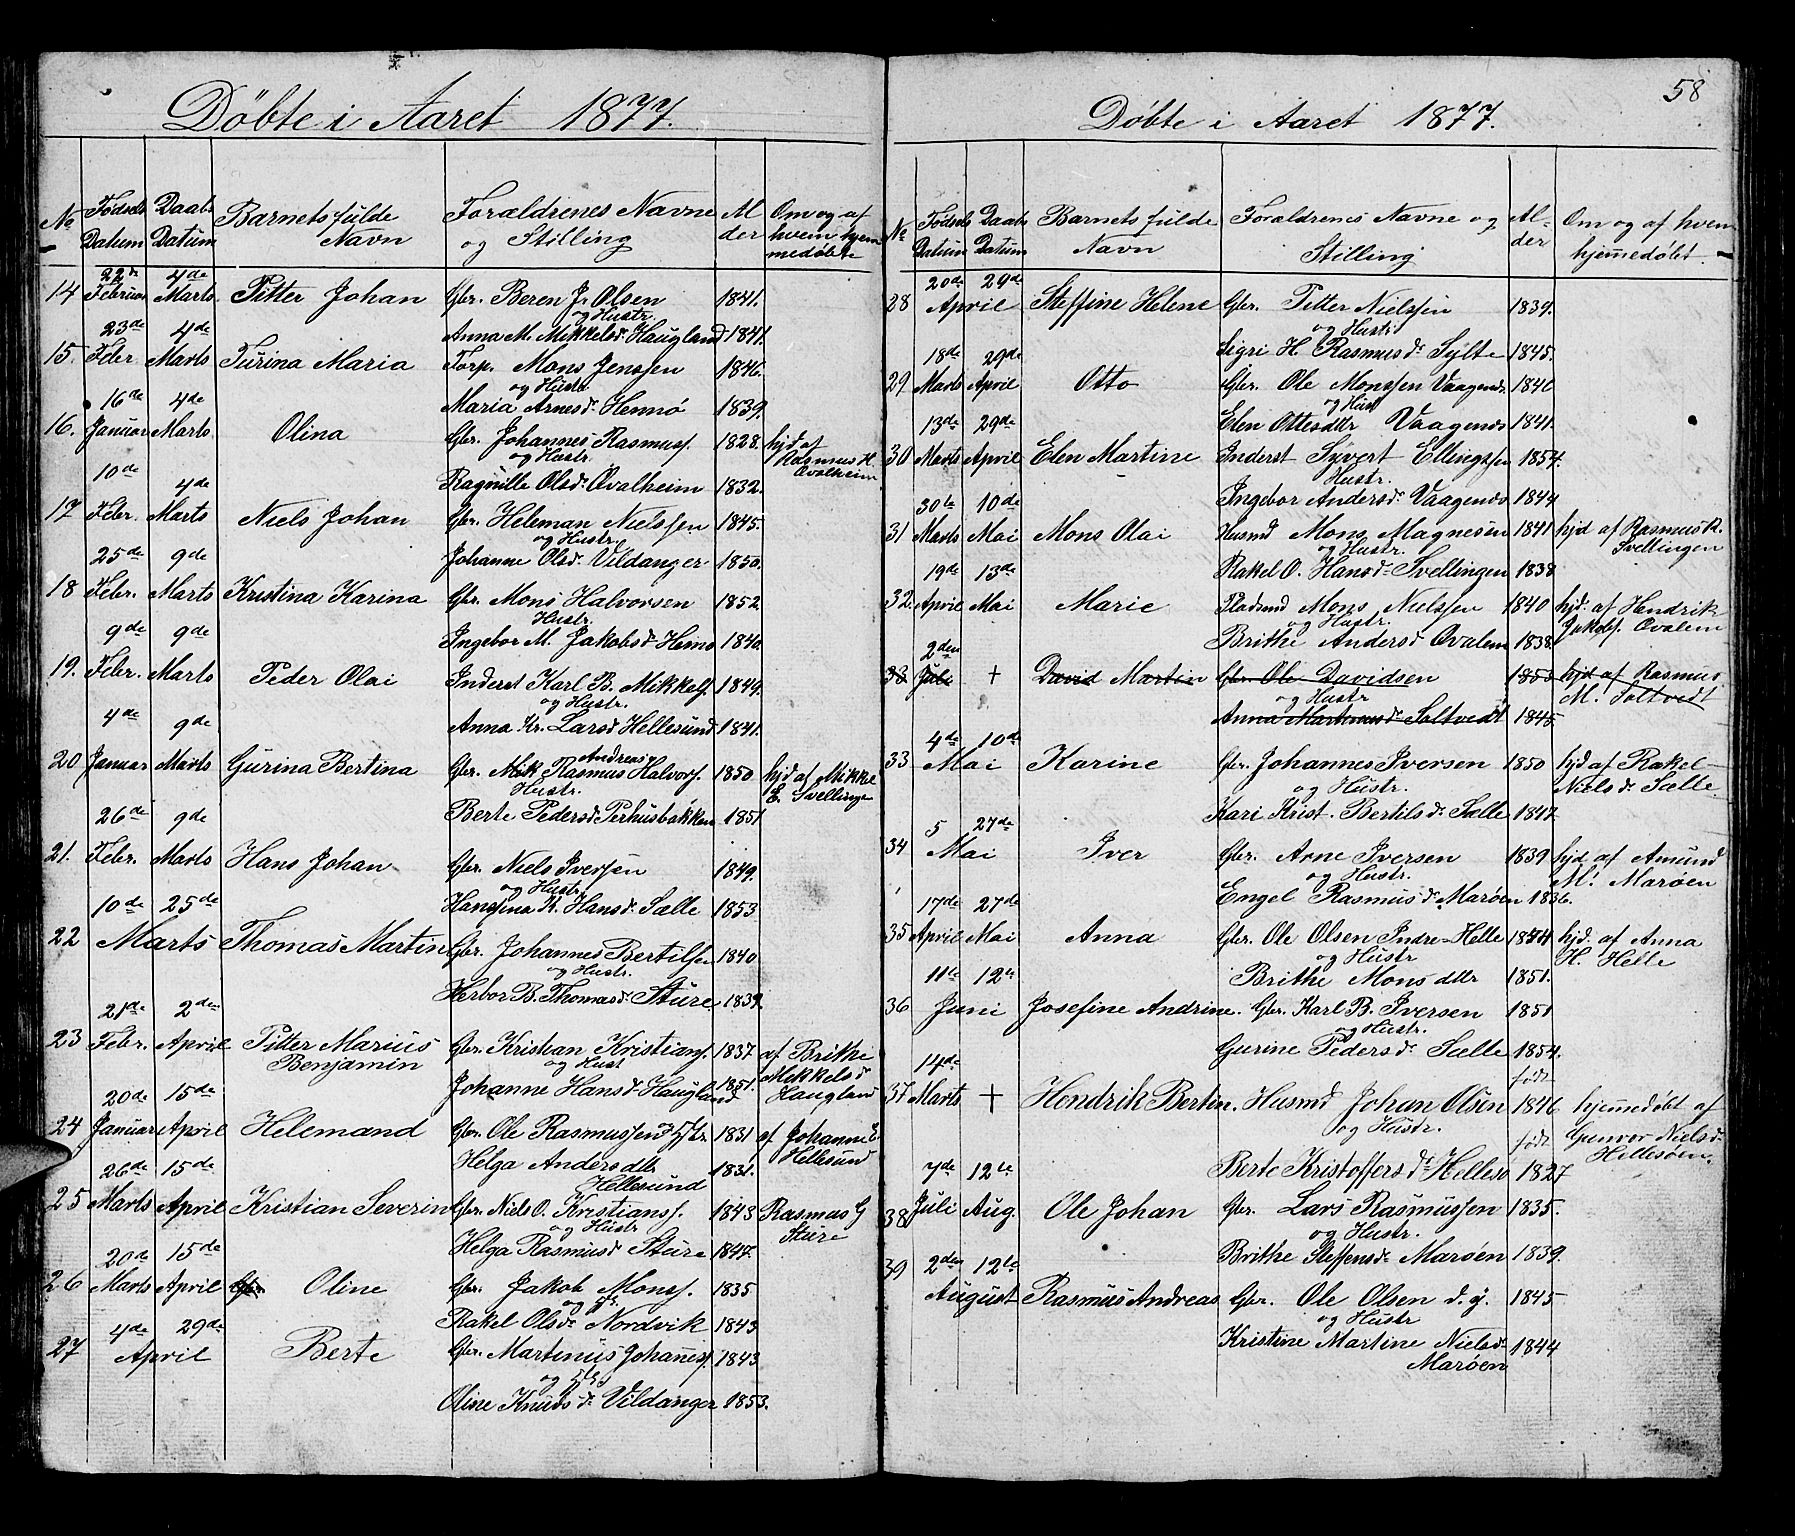 Døbte i Aaret 1877.
No Fødsels Datum Daabs Datum Barnets fulde Navn Forældrenes Navne og Stilling Al der Om og af hvem hjem medøbte
22de 4de
14 Februar Marts Pitter Johan Gbr. Beren J. Olsen 1841.
og Hustr.
23de 4de Anna M. Mikkelsd. Haugland 1841.
15. Febr. Marts Turina Maria Forp. Mons Jenssen 1846.
og Hustr
16de 4de Maria Arnesd. Hennø 1839.
16. Januar Marts Olina Gbr. Johannes Rasmuss. 1828. hjd af
og Hustr. Rasmus H.
10de 4de Ragnille Olsd. Qvalheim 1832. Qvalheim
17 Febr. Marts Niels Johan Gbr. Heleman Nielssen 1845.
og Hustr.
25de 9de Johanne Olsd. Vildanger 1850.
18 Febr. Marts Kristina Karina Gbr. Mons Halvorsen 1852.
Hustr.
9de 9de Ingebor M. Jakobsd. Henno 1840.
19. Febr. Marts Peder Olai Inderst Karl B. Mikkels. 1849.
og Hustr.
4de 9de Anna Kr. Larsd. Hellesund 1841.
Andreas
20 Januar Marts Gurina Bertina Gbr. Mik. Rasmus Halvors. 1850 hjd af Mikkel
Hustr. E. Svellinge
26de 9de Berte Pedersd. Perhusbakken 1851
21. Febr. Marts Hans Johan Gbr. Niels Iversen 1849.
og Hustr.
10de 25de Hanssina R. Hansd. Sælle 1853
22 Marts Thomas Martin Gbr. Johannes Bertilsen 1840
og Hustr.
21de 2den Herbor B. Thomasd. Sture 1839.
23 Febr. April Pitter Marius Gbr. Kristian Kristians. 1837 af Brithe
Benjamin og Hust Mikkelsd
20de 15de Johanne Hansd. Haugland 1851. Haugland
24 Januar April Helemand Gbr. Ole Rasmussen 1831 af Johanne E.
26de 15de Helga Andersdtr 1831. Hellesund
Hellesund
25 Marts April Kristian Severin Gbr. Niels O. Kristians. 1843 Rasmus G
og Hustr Sture
20de 15de Helga Rasmusd. Sture 1847.
26 Marts April Oline Gbr. Jakob Monss. 1835
og
4de 29de Rakel Olsd. Nordvik 1843
27 April Berte Gbr. Martinus Johaness. 1843
og
Oline Knudsd. Vildanger 1853.
58
Døbte i Aaret 1877.
No Fødsels Datum Daabs Datum Barnets fulde Navn Forældrenes Navne og Stilling Al- der Om og af hvem hjemmedøbt.
20de 29de
28 April Steffine Helene Gbr. Pitter Nielssen 1839.
og Hustr
18de 29de Sigri H. Rasmusd. Sylte 1845.
29 Marts April Otto Gbr. Ole Monssen Vaagenes. 1840
og Hust
13de 29de Elen Ottesdtr Vaagenes 1841.
30 Marts April Elen Martine Inderst Syvert Ellingssen 1854.
Hustr.
30te 10de Ingebor Andersd. Vaagenes 1844
31 Marts Mai Mons Olai Husmd Mons Magnesen 1841 hjd af Rasmus R.
og Hustr. Svellingen
19de 13de Rakel O. Hansd. Svellingen 1838
32. April Mai Marie Pladsmd Mons Nielssen 1840 hjd. af Hendrik
og Hustr. Jakobs. Qvalem
2den Brithe Andersd Qvalem 1838.
33 Juli + David Martin Gbr. Ole Davidsen 1853 hjd af Rasmus
og Hustr M. Soltvedt
Anna Martinusd. Soltvedt 1845
4de 10de
33 Mai Karine Gbr. Johannes Iversen 1850 hjd af Rakel
og Hustr. Nielsd. Sælle.
Kari Krist. Bertilsd. Sælle 1847
5 27de
34 Mai Iver Gbr. Arne Iversen 1839 hjd af Amund
og Hustr. M. Marøen
17de 27de Engel Rasmusd. Marøen 1836.
35 April Mai Anna Gbr. Ole Olsen Indre-Helle hjd. af Anna
og Hustr H. Helle
11te 12te Brithe Monsdtr 1851.
36 Juni Josefine Andrine. Gbr. Karl B. Iversen 1851
og Hustr.
14de Gurine Pedersd. Sælle 1854.
født
37 Marts + Hendrik Bertin. Husmd Johan Olsen 1846 hjemmedøbt af
og Hustr. født Gunvor Nielsd.
7de 12te Berte Kristoffersd. Helleso 1827 Hellesøen.
38. Juli Aug. Ole Johan Gbr. Lars Rasmussen 1835.
og Hustr.
Brithe Steffensd. Marøen 1839.
39 2den 12te
August Rasmus Andreas Gbr. Ole Olsen d. y. 1845
og Hustr
Kristine Martine Nielsd. 1844
Marøen